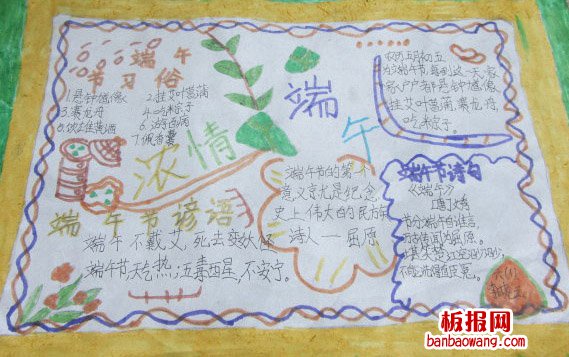 端午
节习俗
1.悬钟馗像
2.挂艾叶菖蒲
3.赛龙舟
4.吃粽子
5.饮雄黄酒
6.游百病
7.佩香囊
浓情
端
午
农历五月初五
为端午节,每到这一天,家
家户户都悬钟馗像
挂艾叶菖蒲,赛龙舟,
吃米粽子。
端午节谚语
端午不戴艾,死去变妖怪
端午节,天气热;五毒醒,不安宁。
端午节的第一个
意义就是纪念
史上伟大的民族
诗人——屈原
端午节诗句
《端午》
唐 文秀
节分端午自谁言,
万古传闻为屈原。
堪笑楚江空渺渺,
不能洗得直臣冤。
板报网
banbaowang.com